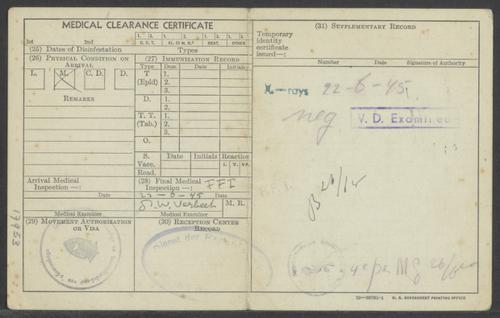 MEDICAL CLEARANCE CERTIFICATE
1. 2. 1. 2. 1. 2. 1. 2.
1st 2nd D. D. T. AL. 63 M. S.* HEAT. OTHER
(25) Dates of Disinfestation Types
(26) PHYSICAL CONDITION ON ARRIVAL
L. M. C. D. D.
REMARKS
(27) IMMUNIZATION RECORD
Type Dose Date Initials
T (Epid) 1.
2.
3.
D. 1.
2.
T. T. (Tab.) 1.
2.
3.
O.
S. Date Initials Reaction
Vacc. I. V. VF.
Read.
Arrival Medical Inspection —:
Medical Examiner
(28) Final Medical Inspection —: FFI
22-6-45
M. R.
Medical Examiner
(29) MOVEMENT AUTHORIZATION OR VISA
(30) RECEPTION CENTER RECORD
(31) SUPPLEMENTARY RECORD
Temporary identity certificate issued—:
Number Date Signature of Authority
X-rays 22-6-45
neg
V. D. Examined
B 26/14
16—39781-1 U. S. GOVERNMENT PRINTING OFFICE